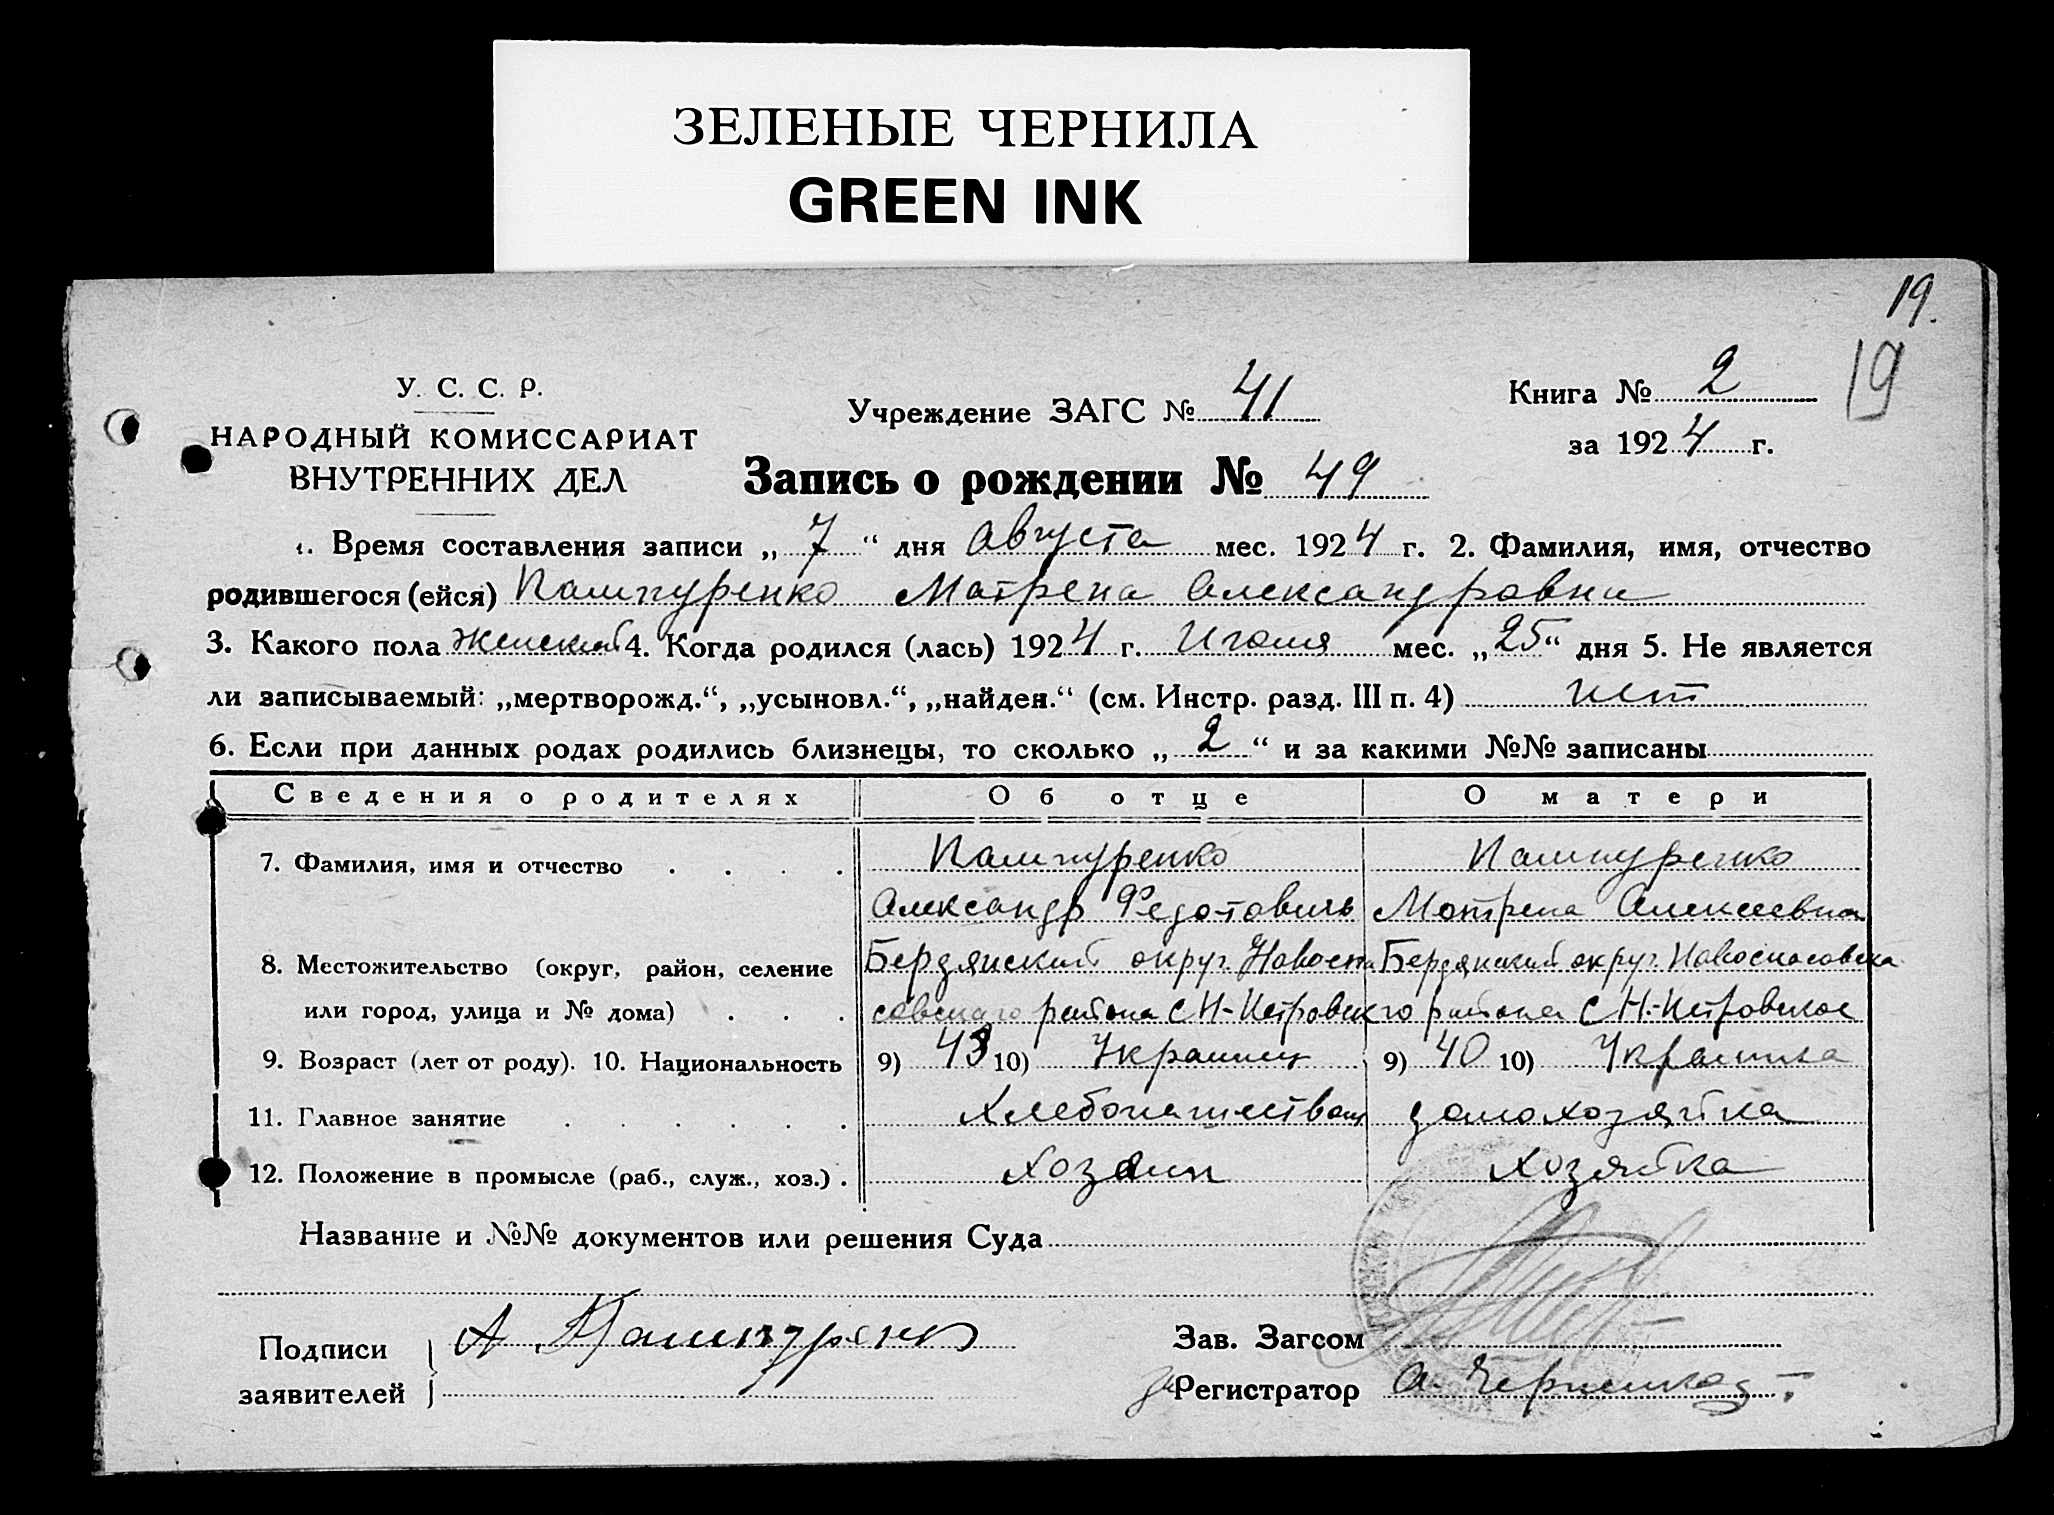 ЗЕЛЕНЫЕ ЧЕРНИЛА
GREEN INK
19.
19
У. С. С. Р.
НАРОДНЫЙ КОМИССАРИАТ
ВНУТРЕННИХ ДЕЛ
Учреждение ЗАГС № 41
Книга № 2
за 1924 г.
Запись о рождении № 49
1. Время составления записи „7“ дня Августа мес. 1924 г. 2. Фамилия, имя, отчество
родившегося (ейся) Пампуренко Матрена Александровна
3. Какого пола женский 4. Когда родился (лась) 1924 г. Июля мес. „25“ дня 5. Не является
ли записываемый: „мертворожд.“, „усыновл.“, „найден.“ (см. Инстр. разд. III п. 4) нет
6. Если при данных родах родились близнецы, то сколько „2“ и за какими №№ записаны
Сведения о родителях Об отце О матери
7. Фамилия, имя и отчество Пампуренко Пампуренко
Александр Федотовичь Мотрена Алексеевна
8. Местожительство (округ, район, селение Бердянский округ. Новоспа Бердянский округ. Новоспасовска
или город, улица и № дома) совскаго района с Н-Петровск го района с Н.-Петровское
9. Возраст (лет от роду). 10. Национальность 9) 43 10) Украинец 9) 40 10) Украинка
11. Главное занятие Хлебопашество домохозяйка
12. Положение в промысле (раб., служ., хоз.) хозяин хозяйка
Название и №№ документов или решения Суда
Подписи
заявителей
А. Пампуренко
Зав. Загсом
за Регистратор А.